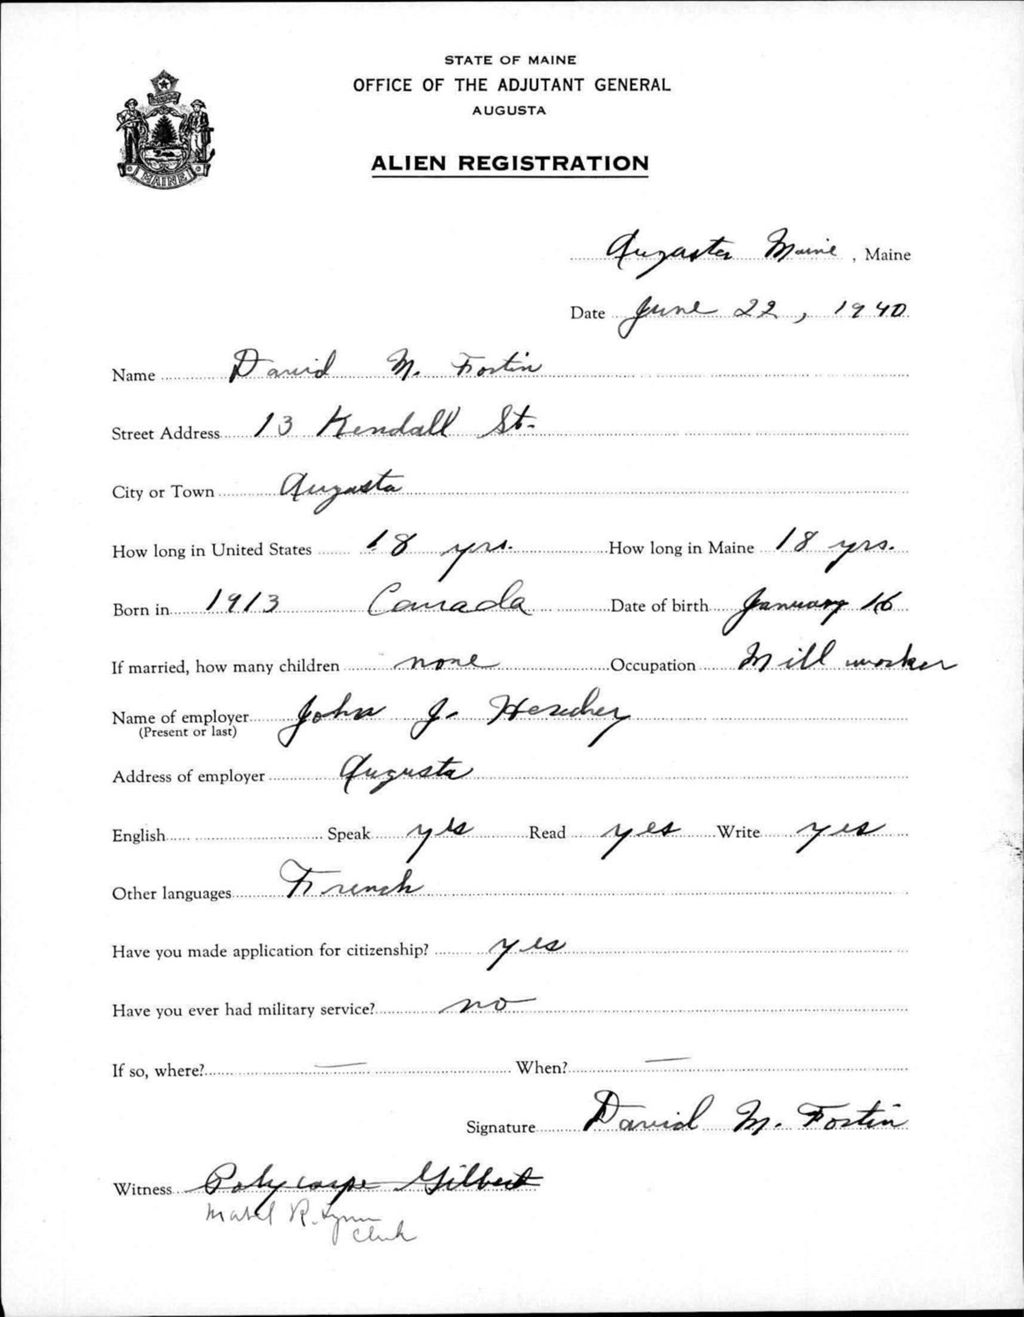 STATE OF MAINE
OFFICE OF THE ADJUTANT GENERAL
AUGUSTA
ALIEN REGISTRATION
MAINE
Augusta Maine, Maine
Date June 22, 1940
Name David M. Fortin
Street Address 13 Kendall St.
City or Town Augusta
How long in United States 18 yrs. How long in Maine 18 yrs.
Born in 1913 Canada Date of birth January 16
If married, how many children none Occupation Mill worker
Name of employer John J.
(Present or last)
Address of employer Augusta
English Speak yes Read yes Write yes
Other languages French
Have you made application for citizenship? yes
Have you ever had military service? no
If so, where? — When? —
Signature David M. Fortin
Witness Polycarpe Gilbert
Mabel R. Lynn
Clerk